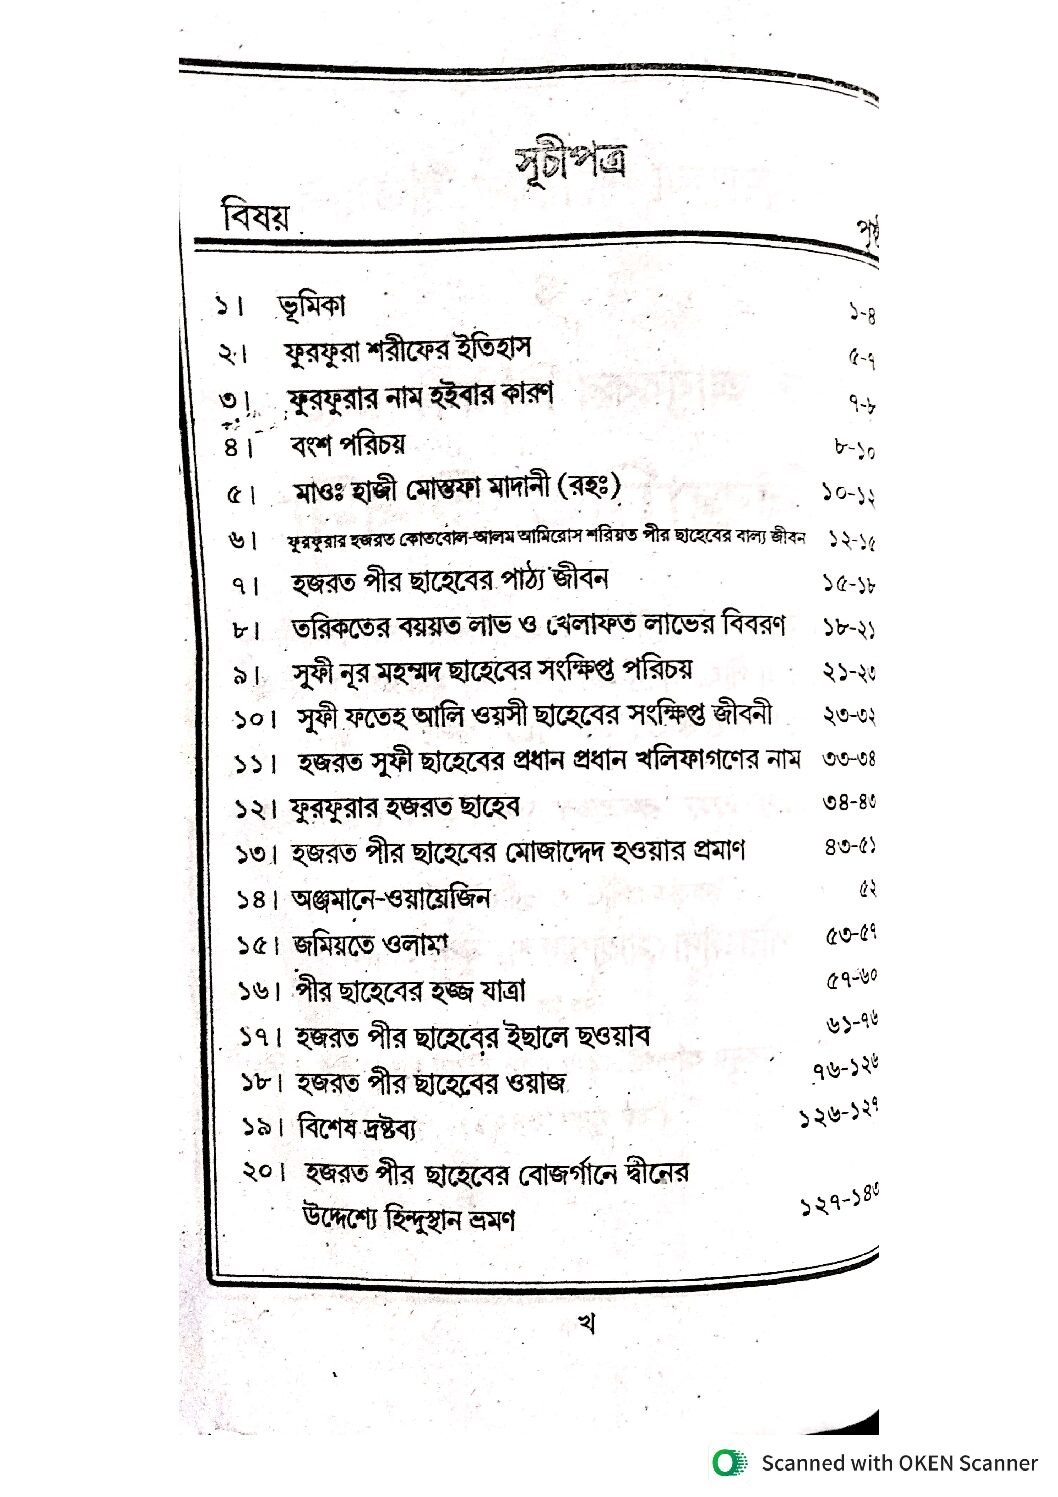 সূচীপত্র
বিষয়
পৃষ্ঠ
১। ভূমিকা ১-৪
২। ফুরফুরা শরীফের ইতিহাস ৫-৭
৩। ফুরফুরার নাম হইবার কারণ ৭-৮
৪। বংশ পরিচয় ৮-১০
৫। মাওঃ হাজী মোস্তফা মাদানী (রহঃ) ১০-১২
৬। ফুরফুরার হজরত কোতবোল-আলম আমিরোস শরিয়ত পীর ছাহেবের বাল্য জীবন ১২-১৫
৭। হজরত পীর ছাহেবের পাঠ্য জীবন ১৫-১৮
৮। তরিকতের বয়য়ত লাভ ও খেলাফত লাভের বিবরণ ১৮-২১
৯। সুফী নূর মহম্মদ ছাহেবের সংক্ষিপ্ত পরিচয় ২১-২৩
১০। সুফী ফতেহ আলি ওয়সী ছাহেবের সংক্ষিপ্ত জীবনী ২৩-৩২
১১। হজরত সুফী ছাহেবের প্রধান প্রধান খলিফাগণের নাম ৩৩-৩৪
১২। ফুরফুরার হজরত ছাহেব ৩৪-৪৩
১৩। হজরত পীর ছাহেবের মোজাদ্দেদ হওয়ার প্রমাণ ৪৩-৫১
১৪। অঞ্জমানে-ওয়ায়েজিন ৫২
১৫। জমিয়তে ওলামা ৫৩-৫৭
১৬। পীর ছাহেবের হজ্জ যাত্রা ৫৭-৬০
১৭। হজরত পীর ছাহেবের ইছালে ছওয়াব ৬১-৭৬
১৮। হজরত পীর ছাহেবের ওয়াজ ৭৬-১২৬
১৯। বিশেষ দ্রষ্টব্য ১২৬-১২৭
২০। হজরত পীর ছাহেবের বোজর্গানে দ্বীনের
উদ্দেশ্যে হিন্দুস্থান ভ্রমণ ১২৭-১৪৩
খ
Scanned with OKEN Scanner